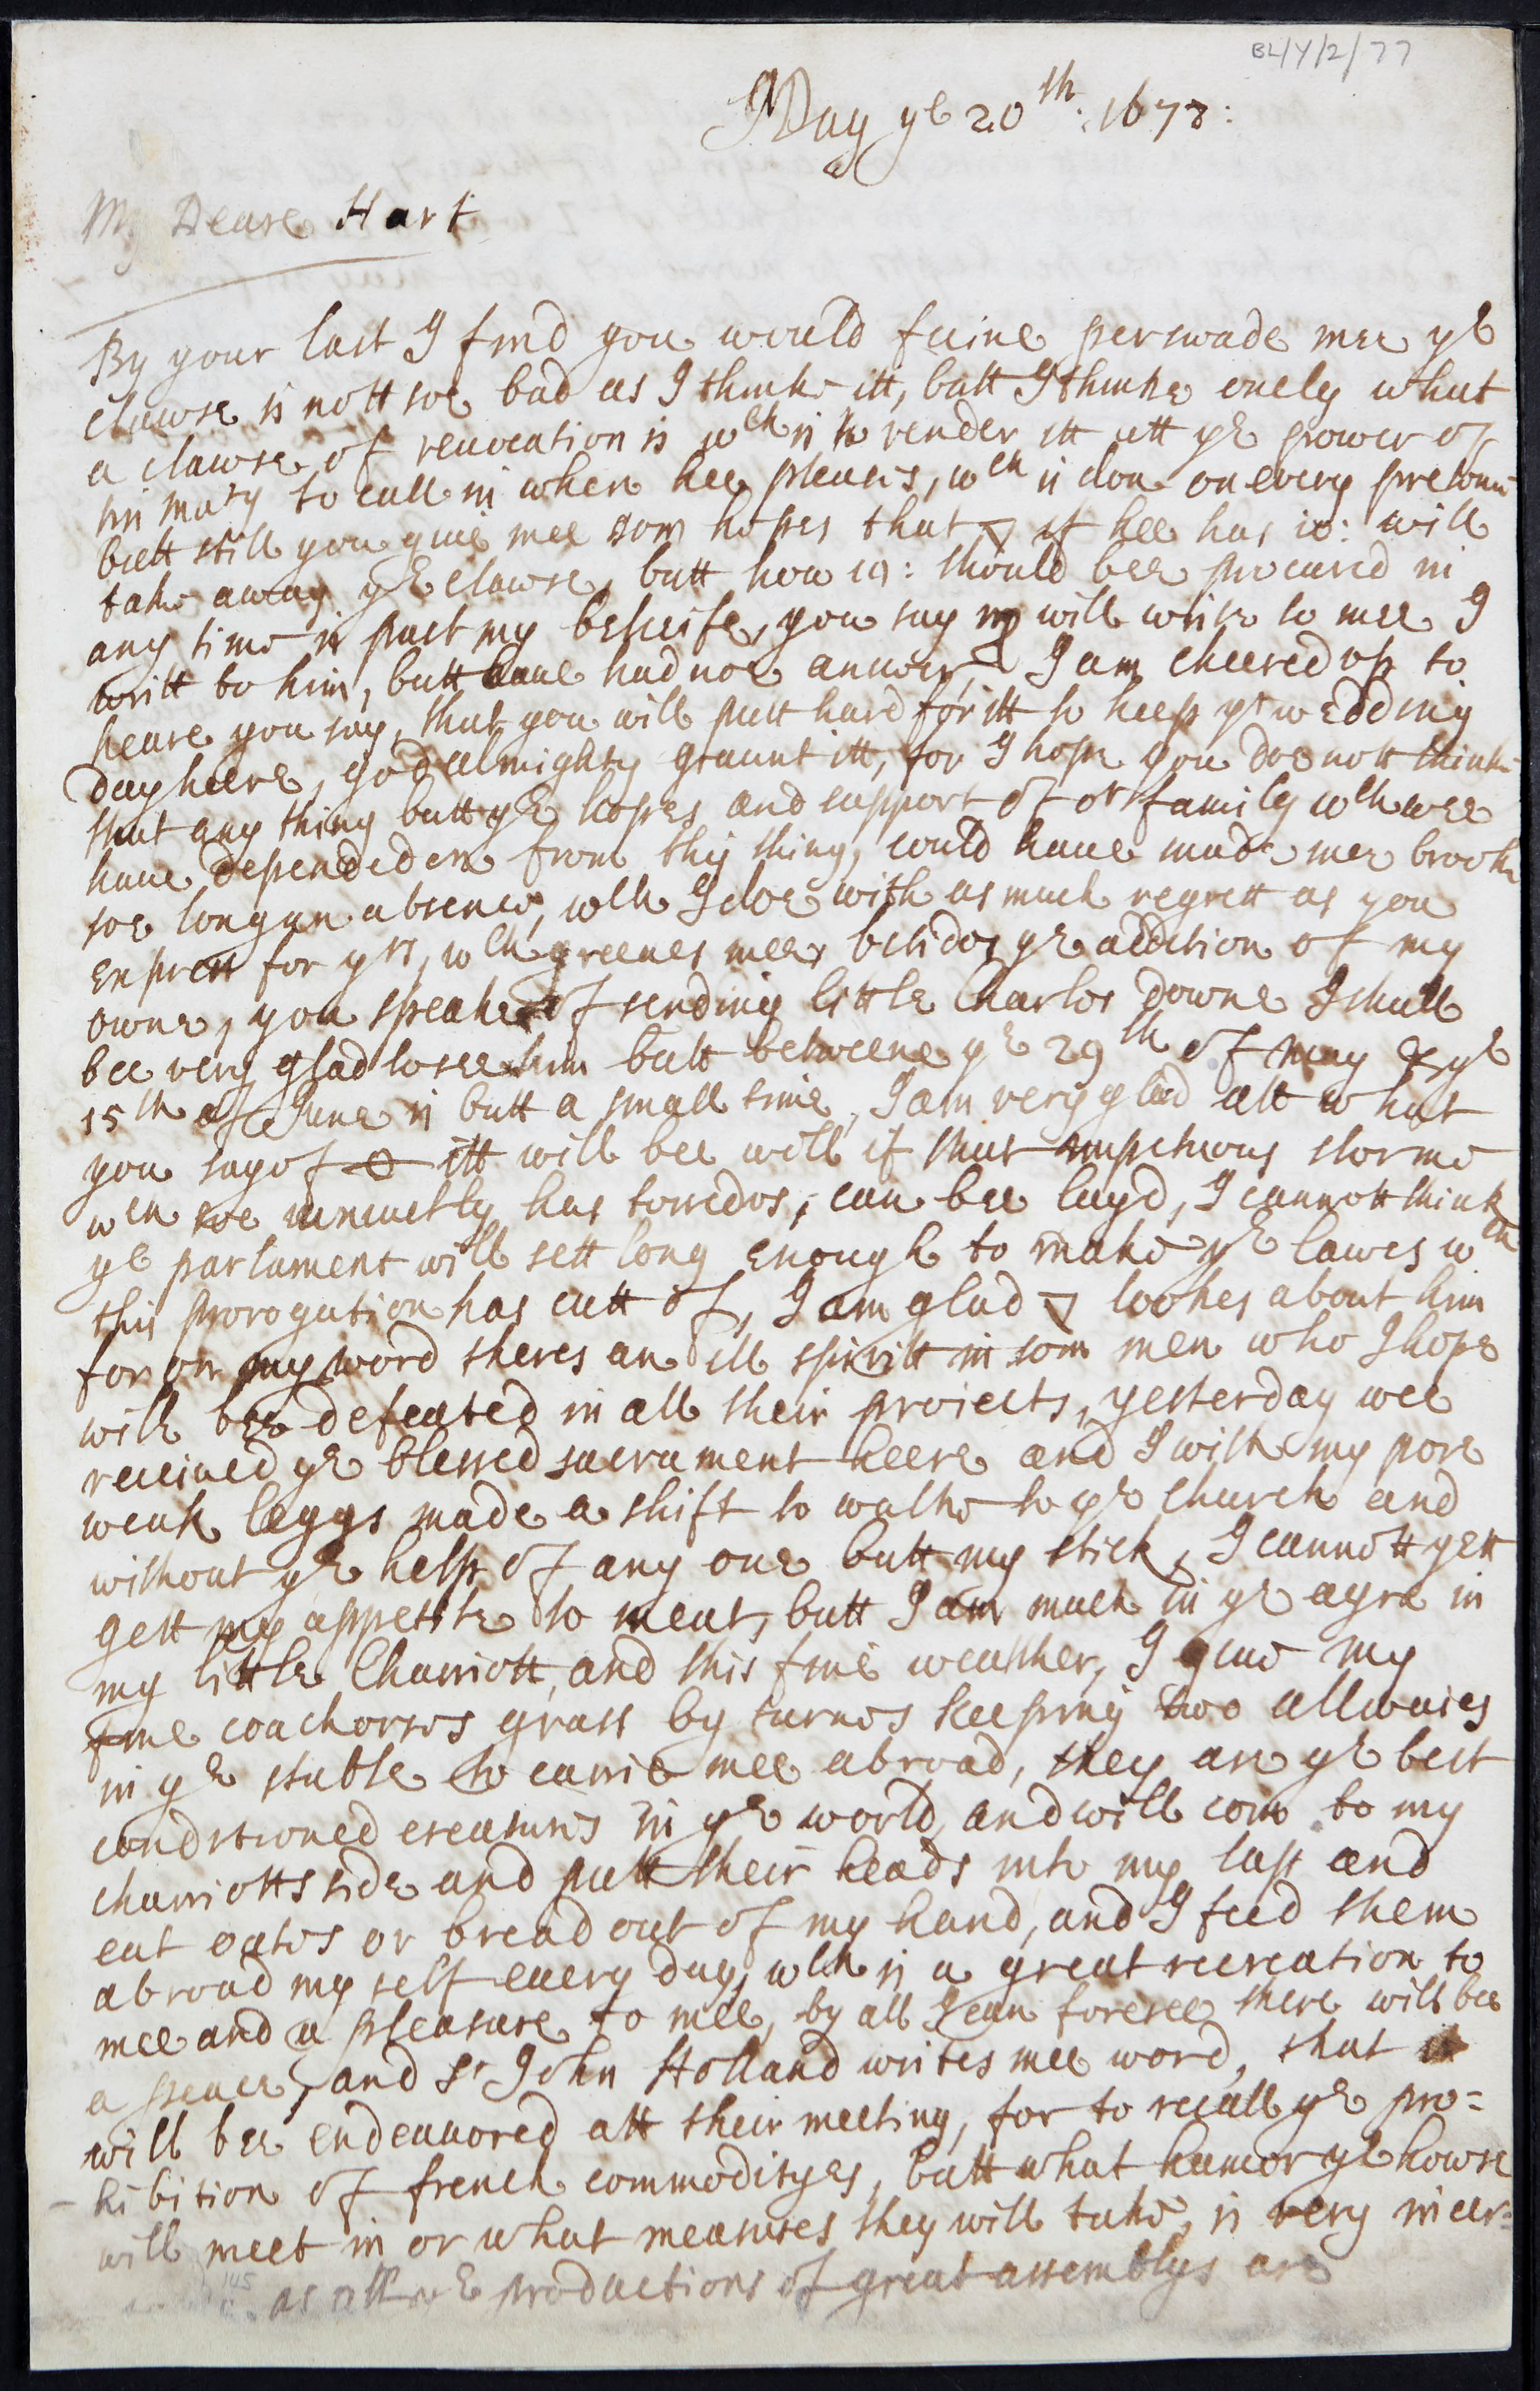 BL/Y/2/77
May ye 20th: 1678:
My Deare Hart
By your last I find you would faine perswade mee ye
clawse is nott soe bad as I thinke itt, butt I thinke onely what
a clawse of reuocation is wch is to render itt att ye power of
his maty to call in when hee pleases, wch is don on every
butt still you giue mee som hopes that if hee has 10: will
take away ye clawse, butt how 19: should bee procured in
any time is past my beleife, you say will write to mee I
writt to him, butt haue had noe answer, I am cheered vp to
heare you say, that you will putt hard for itt to keep yr wedding
day heere, god almighty graunt itt, for I hope you doe nott thinke
that any thing butt ye hopes and support of or family wch wee
haue depended on from this thing, could haue made mee brooke
soe long an absence, wch I doe with as much regrett as you
express for yrs, wch greeues mee besides ye addition of my
owne, you speake of sending little Charles downe I shall
bee very glad to see him butt betweene ye 29th of may & ye
15th of June is butt a small time, I am very glad att what
you say of itt will bee well if that impetuous storme
wch soe uniustly has torredos, can bee layd, I cannott think
ye parlament will sett long enough to make ye lawes wch
this prorogation has cutt of, I am glad lookes about him
for on my word theres an ill spiritt in som men who I hope
will bee defeated in all their proiects, yesterday wee
receiued ye blessed sacrament heere and I with my pore
weak leggs made a shift to walke to ye church and
without ye help of any one butt my stick, I cannott yett
gett my appetite to meat, butt I am much in ye ayre in
my little Charriott, and this fine weather, I giue my
fine coachorses grass by turnes keeping two allwaies
in ye stable to carrie mee abroad, they are ye best
conditioned creatures in ye world, and will com to my
charriotts side and putt their heads into my lap and
eat oates or bread out of my hand, and I feed them
abroad my self euery day, wch is a great recreation to
mee and a pleasure to mee, by all I can foresee there will bee
a peace, and Sr John Holland writes mee word, that it
will bee endeauored att their meeting, for to recall ye pro=
-hibition of french commodityes, butt what humor ye howse
will meet in or what measures they will take, is very incer=
as all ye productions of great assemblys are